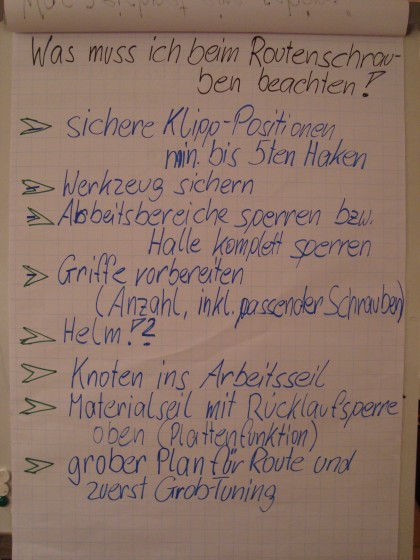 Was muss ich beim Routenschrau-
ben beachten?!
sichere Klipp-Positionen
min. bis 5ten Haken
Werkzeug sichern
Arbeitsbereiche sperren bzw.
Halle komplett sperren
Griffe vorbereiten
(Anzahl, inkl. passender Schrauben)
Helm!?
Knoten ins Arbeitsseil
Materialseil mit Rücklaufsperre
oben (Plattenfunktion)
grober Plan für Route und
zuerst Grob-Tuning